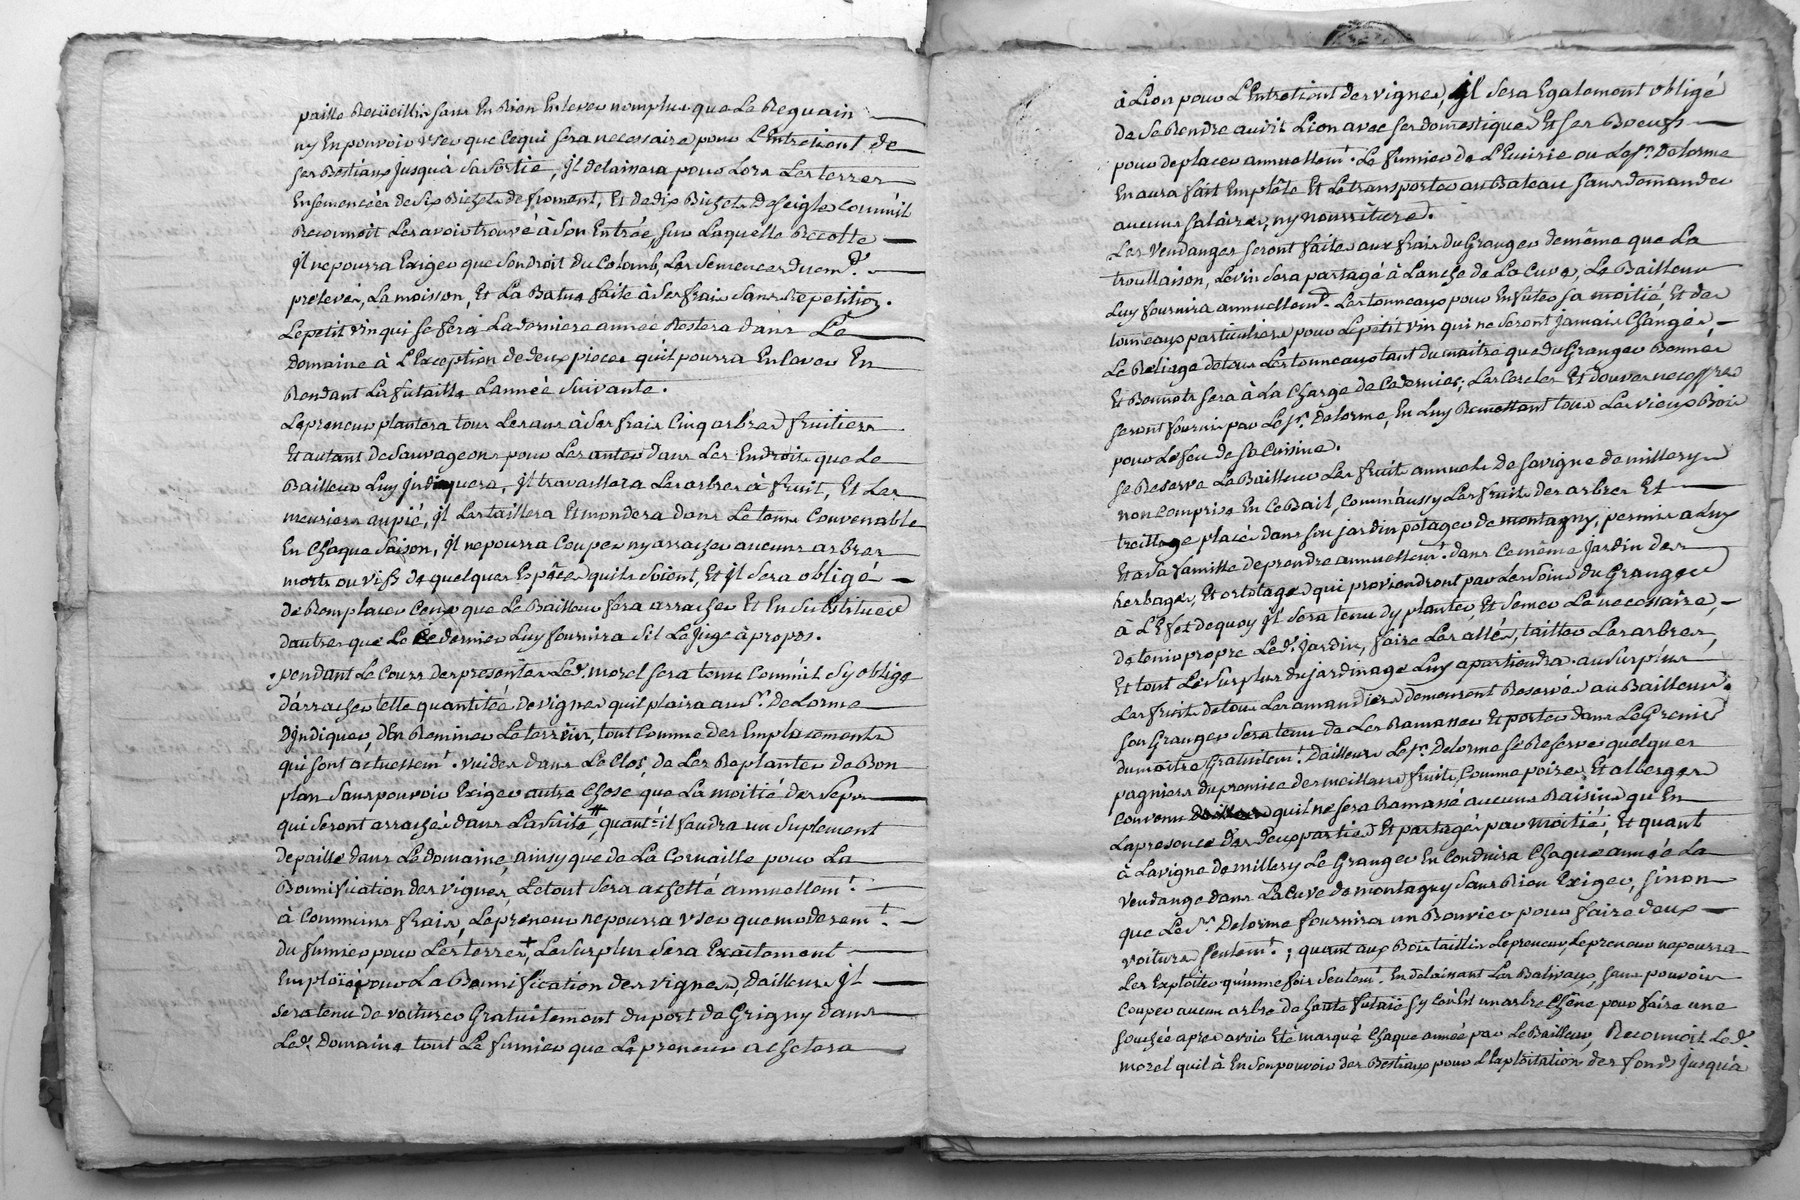 paille Recüeillie sans En Rien Enlever nomplus que Le Reguain
ny En pouvoir user que ce qui sera necessaire pour L'Entretient de
ses Bestiaux Jusqu'à sa sortie, Jl delaissera pour Lors Les terres
Ensemencées de six Bichets de froment, Et de dix Bichets de seigle comm'il
Reconnoit Les avoir trouvé à son Entrée, sur Laquelle Recolte
Jl ne pourra Exiger que son droit du Colomb, Les semences duem.t
prélevés, La moisson, Et La Batue faite à ses frais sans Repetition.
Le petit vin qui se fera La derniere année Restera dans Le
Domaine à L'Exception de deux pieces qu'il pourra Enlever En
Rendant La futaille L'année suivante.
Le preneur plantera tous Les ans à ses frais Cinq arbres fruitiers
Et autant de sauvageons pour Les anter dans Les Endroits que Le
Bailleur Luy Jndiquera, Jl travaillera Les arbres à fruit, Et Les
meuriers au pié, Jl Les taillera Et mondera dans Le tems Convenable
En Chaque saison, Jl ne pourra Couper ny arracher aucuns arbres
morts ou vifs de quelques Espêces quils soient, Et Jl sera obligé
de Remplacer Ceux que Le Bailleur fera arracher Et En substituer
dautres que Le Ce dernier Luy fournira sil Le juge à propos.
pendant Le Cours des presentes Led. morel sera tenu Comm'il sy oblige
d'arracher telle quantitée de vignes quil plaira au s.r DeLorme
D'Jndiquer, d'En Reminer Le terrein, tout Comme des Emplacements
qui sont actuellem.t vuides dans Le Clos, de Les Replanter de Bon
plan sans pouvoir Exiger autre Chose que La moitié des seps
qui seront arrachés dans La suite, # quant-il faudra un suplement
de paille dans Le domaine, ainsy que de La Cornaille pour La
Bonnification des vignes, Le tout sera achetté annuellem.t
à Communs frais, Le preneur ne pourra user que moderem.t
du fumier pour Les terres, + Le surplus sera Exaitement
Emploïé pour La Bonnification des vignes, Dailleurs Jl
sera tenu de voiturer Gratuitement du port de Grigny dans
Led. Domaine tout Le fumier que Le preneur achetera
à Lion pour L'Entretient des vignes, Jl sera Egalement obligé
de se Rendre audit Lion avec ses domestiques Et ses Boeufs
pour deplacer annuellem.t Le fumier de L'Ecuirie ou Le s.r Delorme
En aura fait Emplête Et Le transporter au Bateau sans demander
aucuns salaires, ny nourriture.
Les Vendanges seront faites aux frais du Granger de même que La
troullaison, Le vin sera partagé à Lanche de La Cuve, Le Bailleur
Luy fournira annuellem.t Les tonneaux pour Enfuter sa moitié, Et des
tonneaux particuliers pour Le petit vin qui ne seront jamais Changés,
Le Reliage de tous Les tonneaux tant du maitre que du Granger Bonnes
Et Bennots sera à La Charge de Ce dernier; Les Cercles Et douves necessres
seront fournis par Le s.r delorme, En Luy Remettant tous Les vieux Bois
pour Le feu de sa Cuisine.
se Reserve Le Bailleur Les fruits annuels de sa vigne de millery
non comprise En ce Bail, comm'aussy Les fruits des arbres Et
treillage placé dans son jardin potager de montagny, permis a Luy
Et a sa famille de prendre annuellem.t dans ce même jardin des
herbages, Et ortolages qui proviendront par Les soins du Granger
à L'Efet de quoy Jl sera tenu d'y planter, Et semer Le necessaire,
de tenir propre Led. jardin, faire Les allés, tailler Les arbres,
Et tout Le surplus du jardinage Luy apartiendra. au surplus
Les fruits de tous Les amandiers demeurent Reservés au Bailleur.
son Granger sera tenu de Les Ramasser Et porter dans Le Grenier
du maitre Gratuitem.t Dailleurs Le s.r Delorme se Reserve quelques
pagniers du premier des meilleurs fruits, Comme poires Et alberges
convenu quil ne sera Ramassé aucuns Raisins qu'En
La presence des Deux parties Et partagés par moitié, Et quant
à La vigne de millery Le Granger En Conduira Chaque année La
vendange dans La Cuve de montagny sans Rien Exiger, sinon
que Le s.r Delorme fournira un Bouvier pour faire deux
voitures seulem.t; quant aux Bois taillis Le preneur, Le preneur ne pourra
Les Exploiter qu'une fois seulem.t En delaissant Les Baliveaux, sans pouvoir
Couper aucun arbre de haute futaïe sy Ce n'Est un arbre Chêne pour faire une
souchée apres avoir Eté marqué Chaque année par Le Bailleur, Reconnoit Led.
morel quil à En son pouvoir des Bestiaux pour L'Exploitation des fonds Jusqu'à